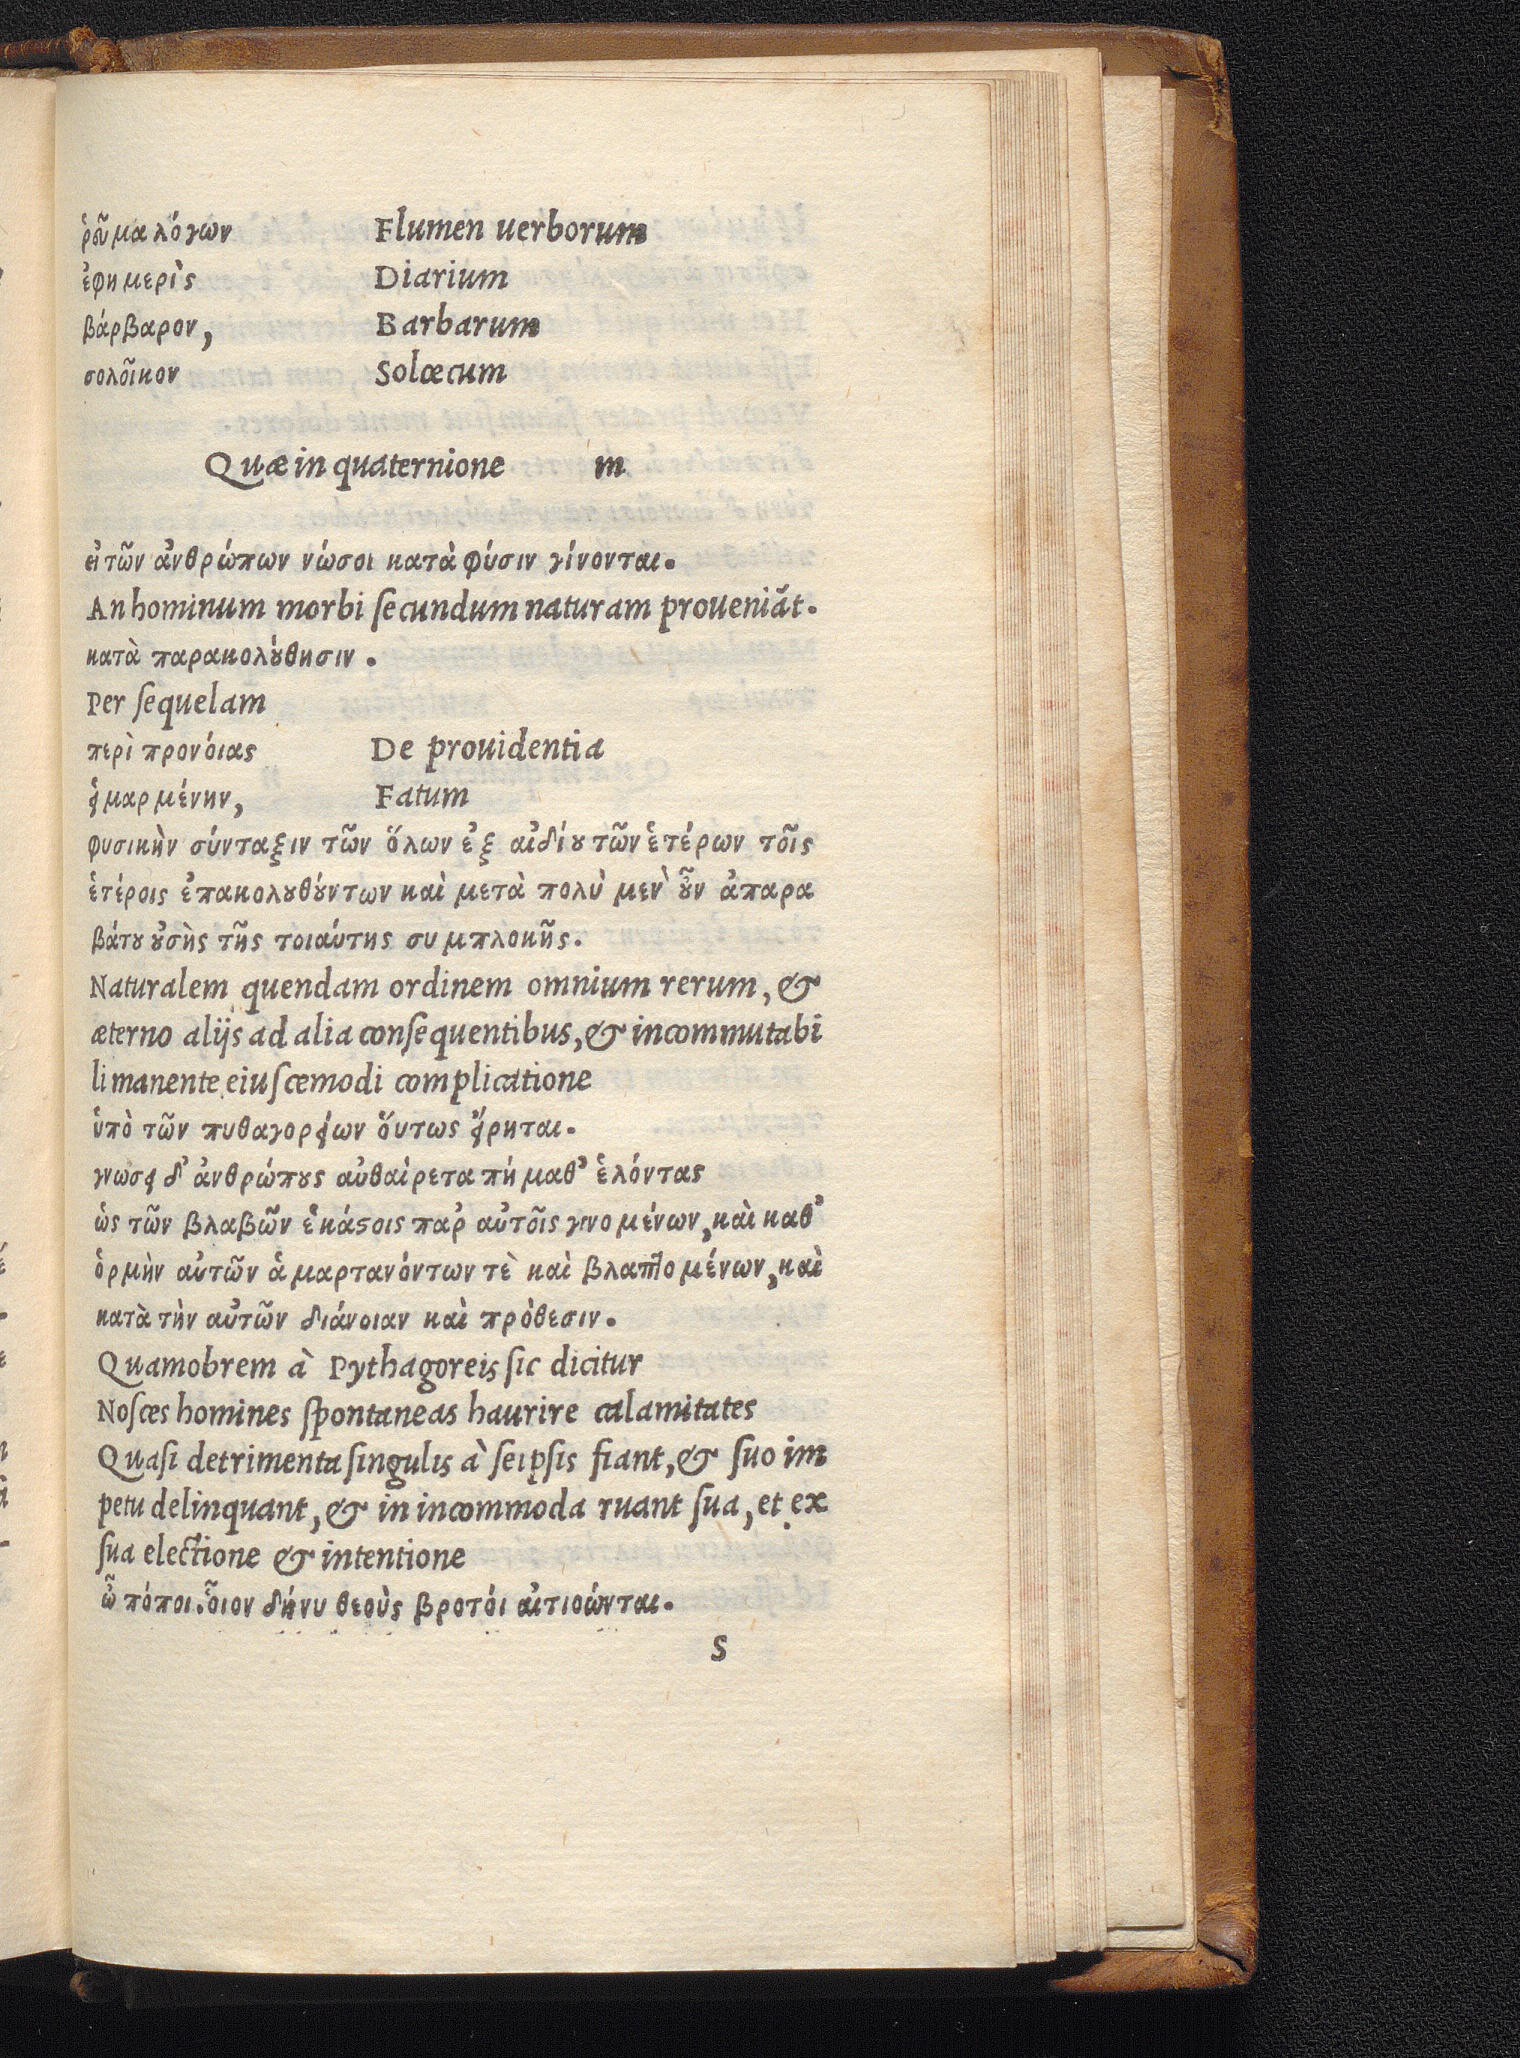 ῥοῦμα λόγων Flumen uerborum
ἐφημερὶς Diarium
βάρβαρον, Barbarum
σολοῖκον Solœcum
Quæ in quaternione m
εἰ τῶν ἀνθρώπων νώσοι κατὰ φύσιν γίνονται.
An hominum morbi ſecundum naturam proueniãt.
κατὰ παρακολούθησιν.
Per ſequelam
περὶ προνόιας De prouidentia
εἱμαρμένην, Fatum
φυσικὴν σύνταξιν τῶν ὅλων ἐξ αἰδίου τῶν ἑτέρων τοῖς
ἑτέροις ἐπακολουθούντων καὶ μετὰ πολὺ μεν̀ οὖν ἀπαρα
βάτου οὐσὴς τῆς τοιαύτης συμπλοκῆς.
Naturalem quendam ordinem omnium rerum, &
æterno alijs ad alia conſequentibus, & incommutabi
li manente eiuſcemodi complicatione
ὑπὸ τῶν πυθαγορείων ὅυτως εἴρηται.
γνωσει δ’ ἀνθρώπους αὐθαίρετα πήμαθ’ ἑλόντας
ὡς τῶν βλαβῶν ἑκάϛοις παρ’ αὐτοῖς γινομένων, καὶ καθ’
ὁρμὴν αὐτῶν ἁμαρτανόντων τὲ καὶ βλαπτομένων, καὶ
κατὰ τὴν αὐτῶν διάνοιαν καὶ πρόθεσιν.
Quamobrem à Pythagoreis ſic dicitur
Noſces homines ſpontaneas haurire calamitates
Quaſi detrimenta ſingulis à ſeipſis fiant, & ſuo im
petu delinquant, & in incommoda ruant ſua, et ex
ſua electione & intentione
ὦ πόποι. οἷον δήνυ θεοὺς βροτόι αἰτιοώνται.
S